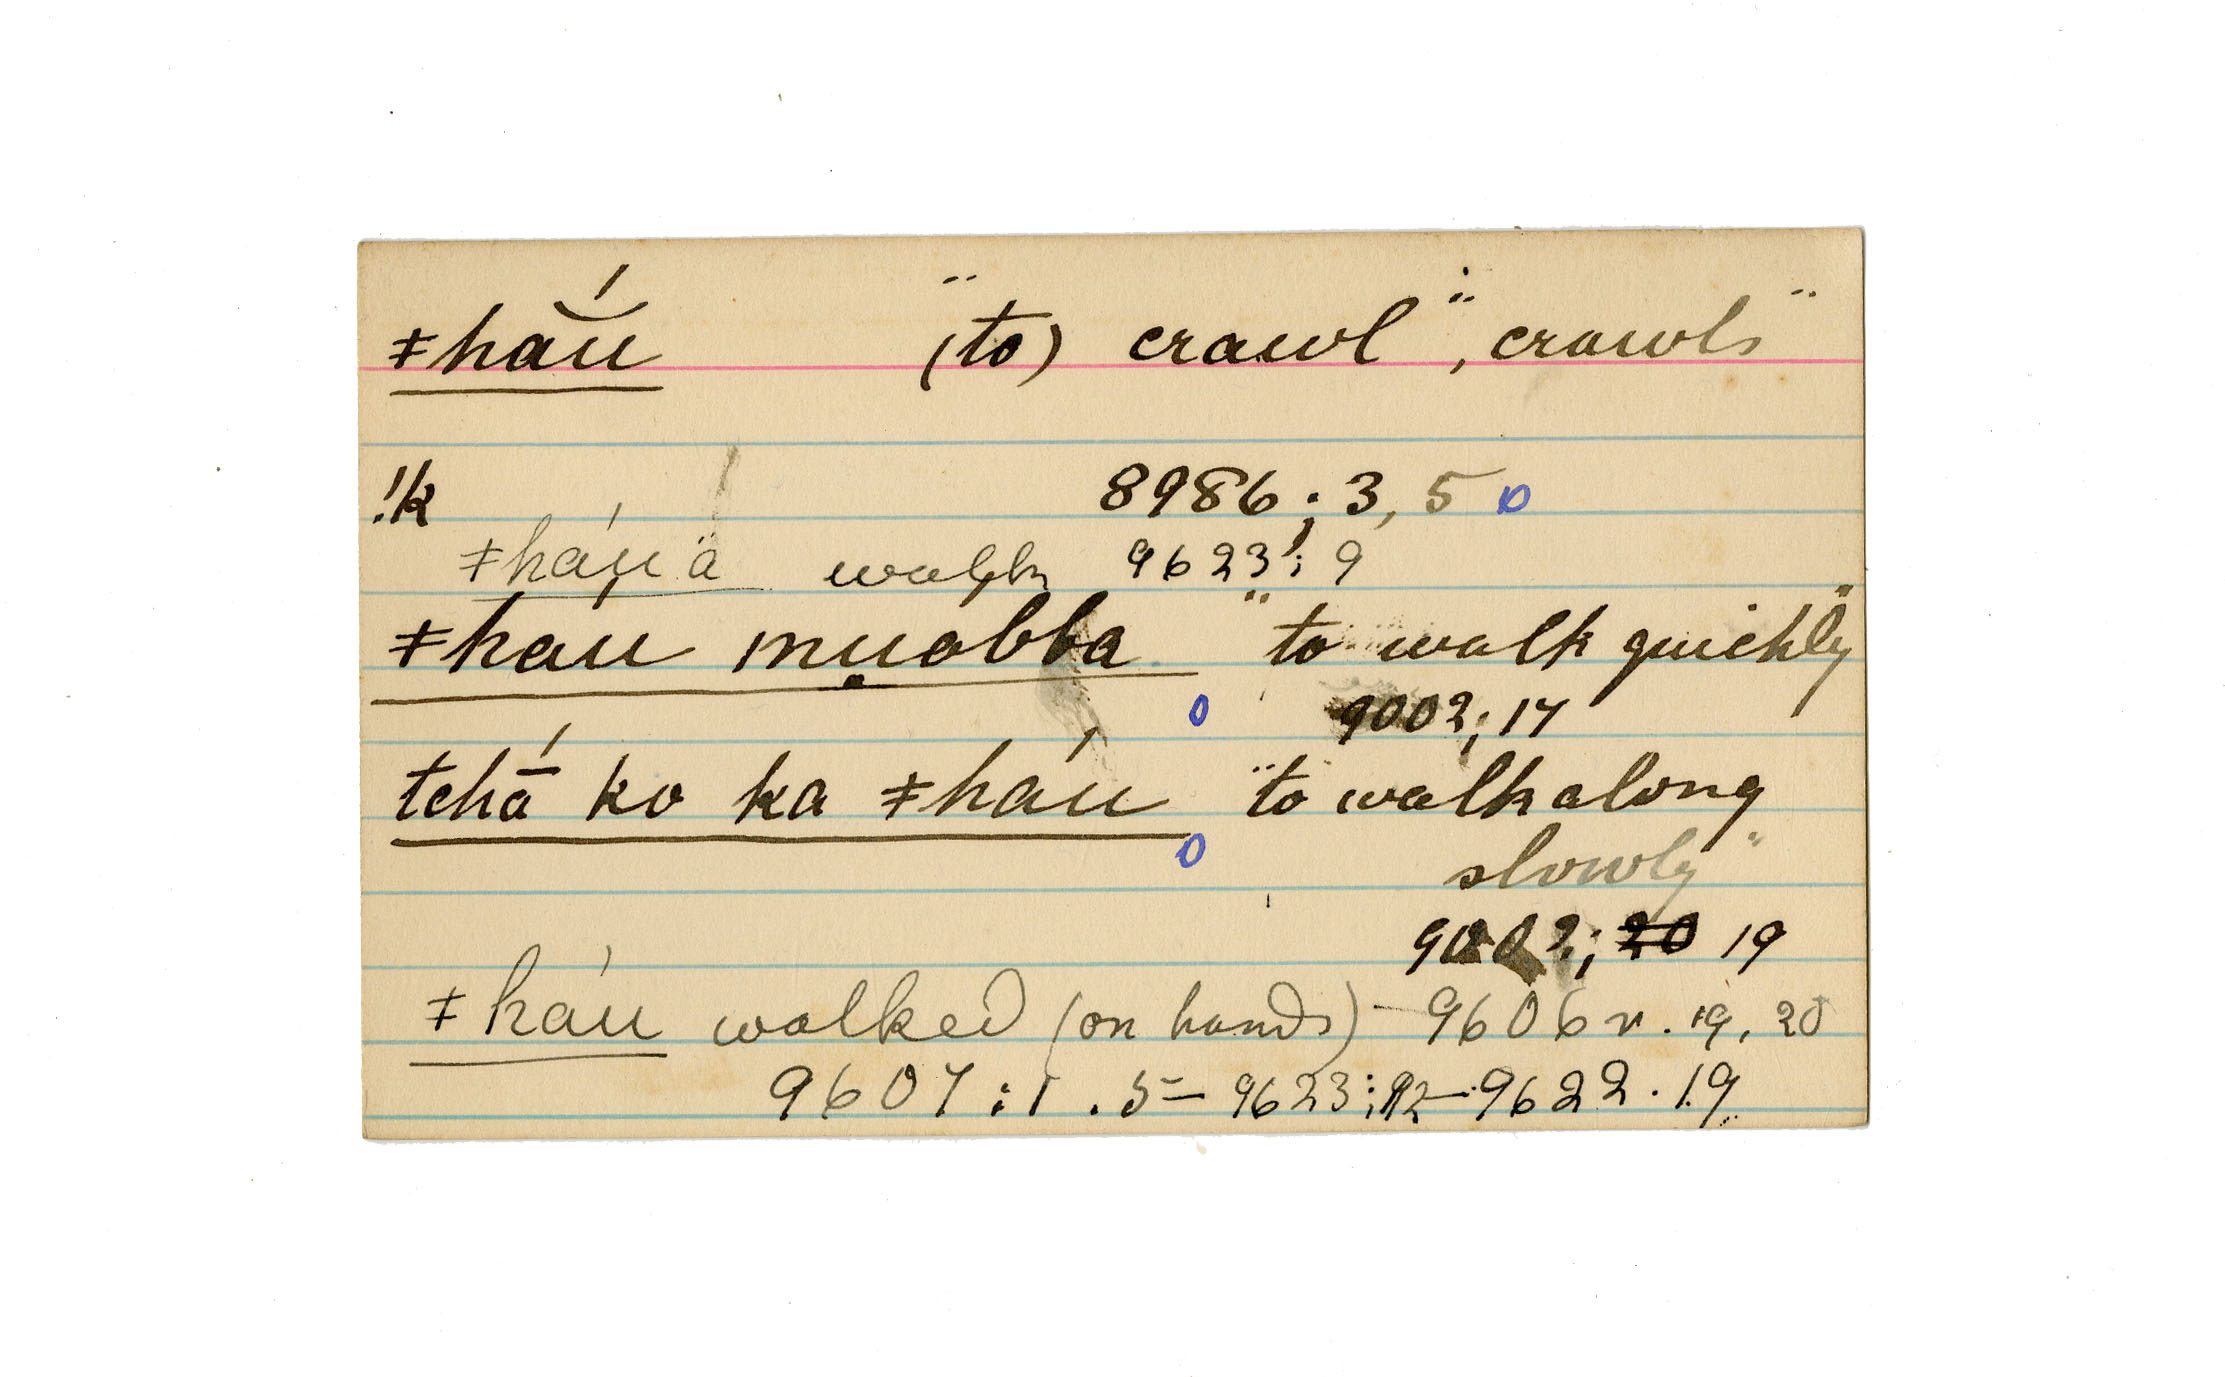 ǂhắu "(to) crawl", "crawls"
!k 8986; 3, 5 o
ǂháu̩ä walk 9623; 9
ǂhau mu̩obba "to walk quickly"
o 9002; 17
tchā́ ko ka ǂháu "to walk along
o slowly"
9002; 20 19
ǂháu walked (on hands) - 9606 r. 19, 20
9607: 1. 5 - 9623; 12 - 9622. 19